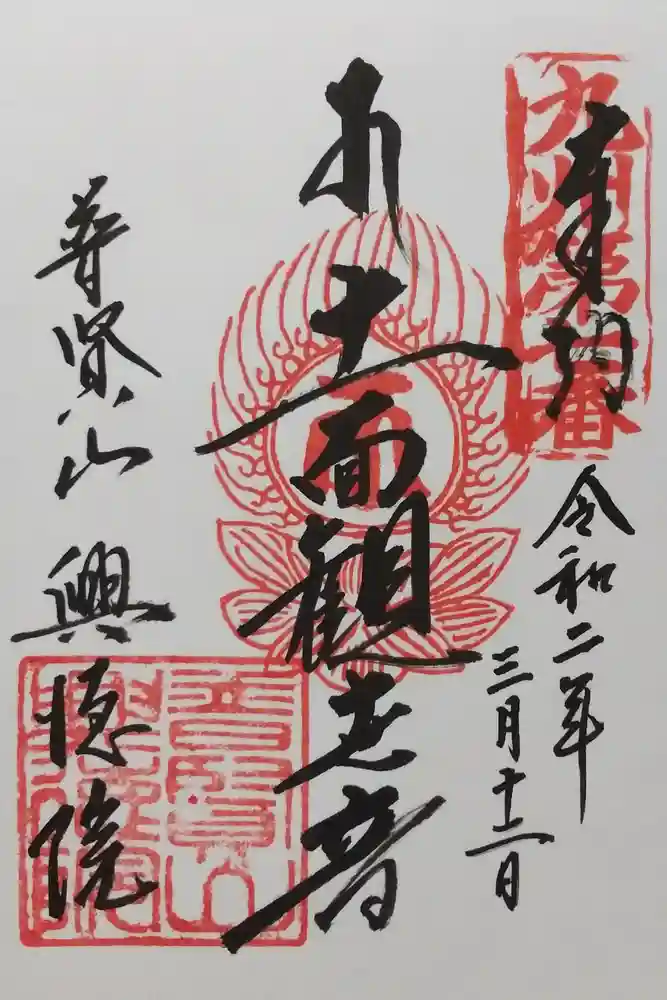 奉拝
令和二年
三月十二日
十一面觀世音
普賢山 興徳院